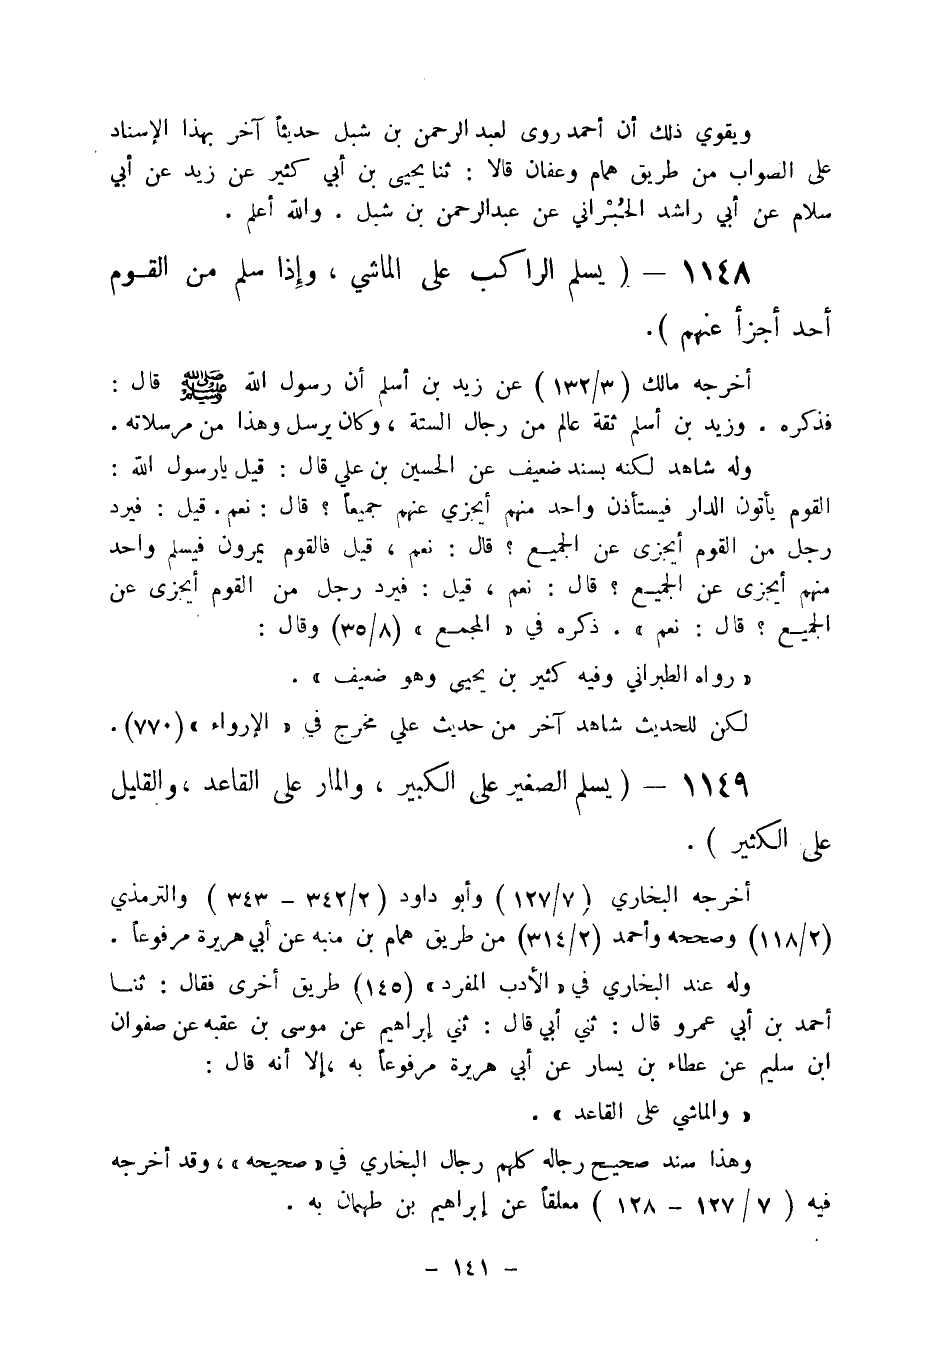 ويقوي ذلك أن أحمد روى لعبد الرحمن بن شبل حديثاً آخر بهذا الإسناد
على الصواب من طريق همام وعفان قالا : ثنا يحيى بن أبي كثير عن زيد عن أبي
سلام عن أبي راشد الحُبْراني عن عبدالرحمن بن شبل . والله أعلم .
١١٤٨ – ( يسلم الراكب على الماشي ، وإذا سلم من القوم
أحد أجزأ عنهم ).
أخرجه مالك ( ١٣٢/٣ ) عن زيد بن أسلم أن رسول الله ﷺ قال :
فذكره . وزيد بن أسلم ثقة عالم من رجال الستة ، وكان يرسل وهذا من مرسلاته .
وله شاهد لكنه بسند ضعيف عن الحسين بن علي قال : قيل يارسول الله :
القوم يأتون الدار فيستأذن واحد منهم أيجزي عنهم جميعاً ؟ قال : نعم . قيل : فيرد
رجل من القوم أيجزى عن الجميع ؟ قال : نعم ، قيل فالقوم يمرون فيسلم واحد
منهم أيجزى عن الجميع ؟ قال : نعم ، قيل : فيرد رجل من القوم أيجزى عن
الجميع ؟ قال : نعم » . ذكره في « المجمع » (٣٥/٨) وقال :
« رواه الطبراني وفيه كثير بن يحيى وهو ضعيف » .
لكن للحديث شاهد آخر من حديث علي مخرج في « الإرواء » (٧٧٠) .
١١٤٩ – ( يسلم الصغير على الكبير ، والمار على القاعد ، والقليل
على الكثير ) .
أخرجه البخاري ( ١٢٧/٧ ) وأبو داود ( ٣٤٢/٢ – ٣٤٣ ) والترمذي
(١١٨/٢) وصححه وأحمد (٣١٤/٢) من طريق همام بن منبه عن أبي هريرة مرفوعاً .
وله عند البخاري في « الأدب المفرد » (١٤٥) طريق أخرى فقال : ثنا
أحمد بن أبي عمرو قال : ثني أبي قال : ثني إبراهيم عن موسى بن عقبه عن صفوان
ابن سليم عن عطاء بن يسار عن أبي هريرة مرفوعاً به ،إلا أنه قال :
« والماشي على القاعد » .
وهذا سند صحيح رجاله كلهم رجال البخاري في « صحيحه » ، وقد أخرجه
فيه ( ٧ /١٢٧ – ١٢٨ ) معلقاً عن إبراهيم بن طهمان به .
– ١٤١ –